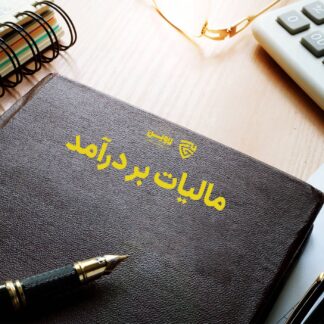 مالیات بر درآمد